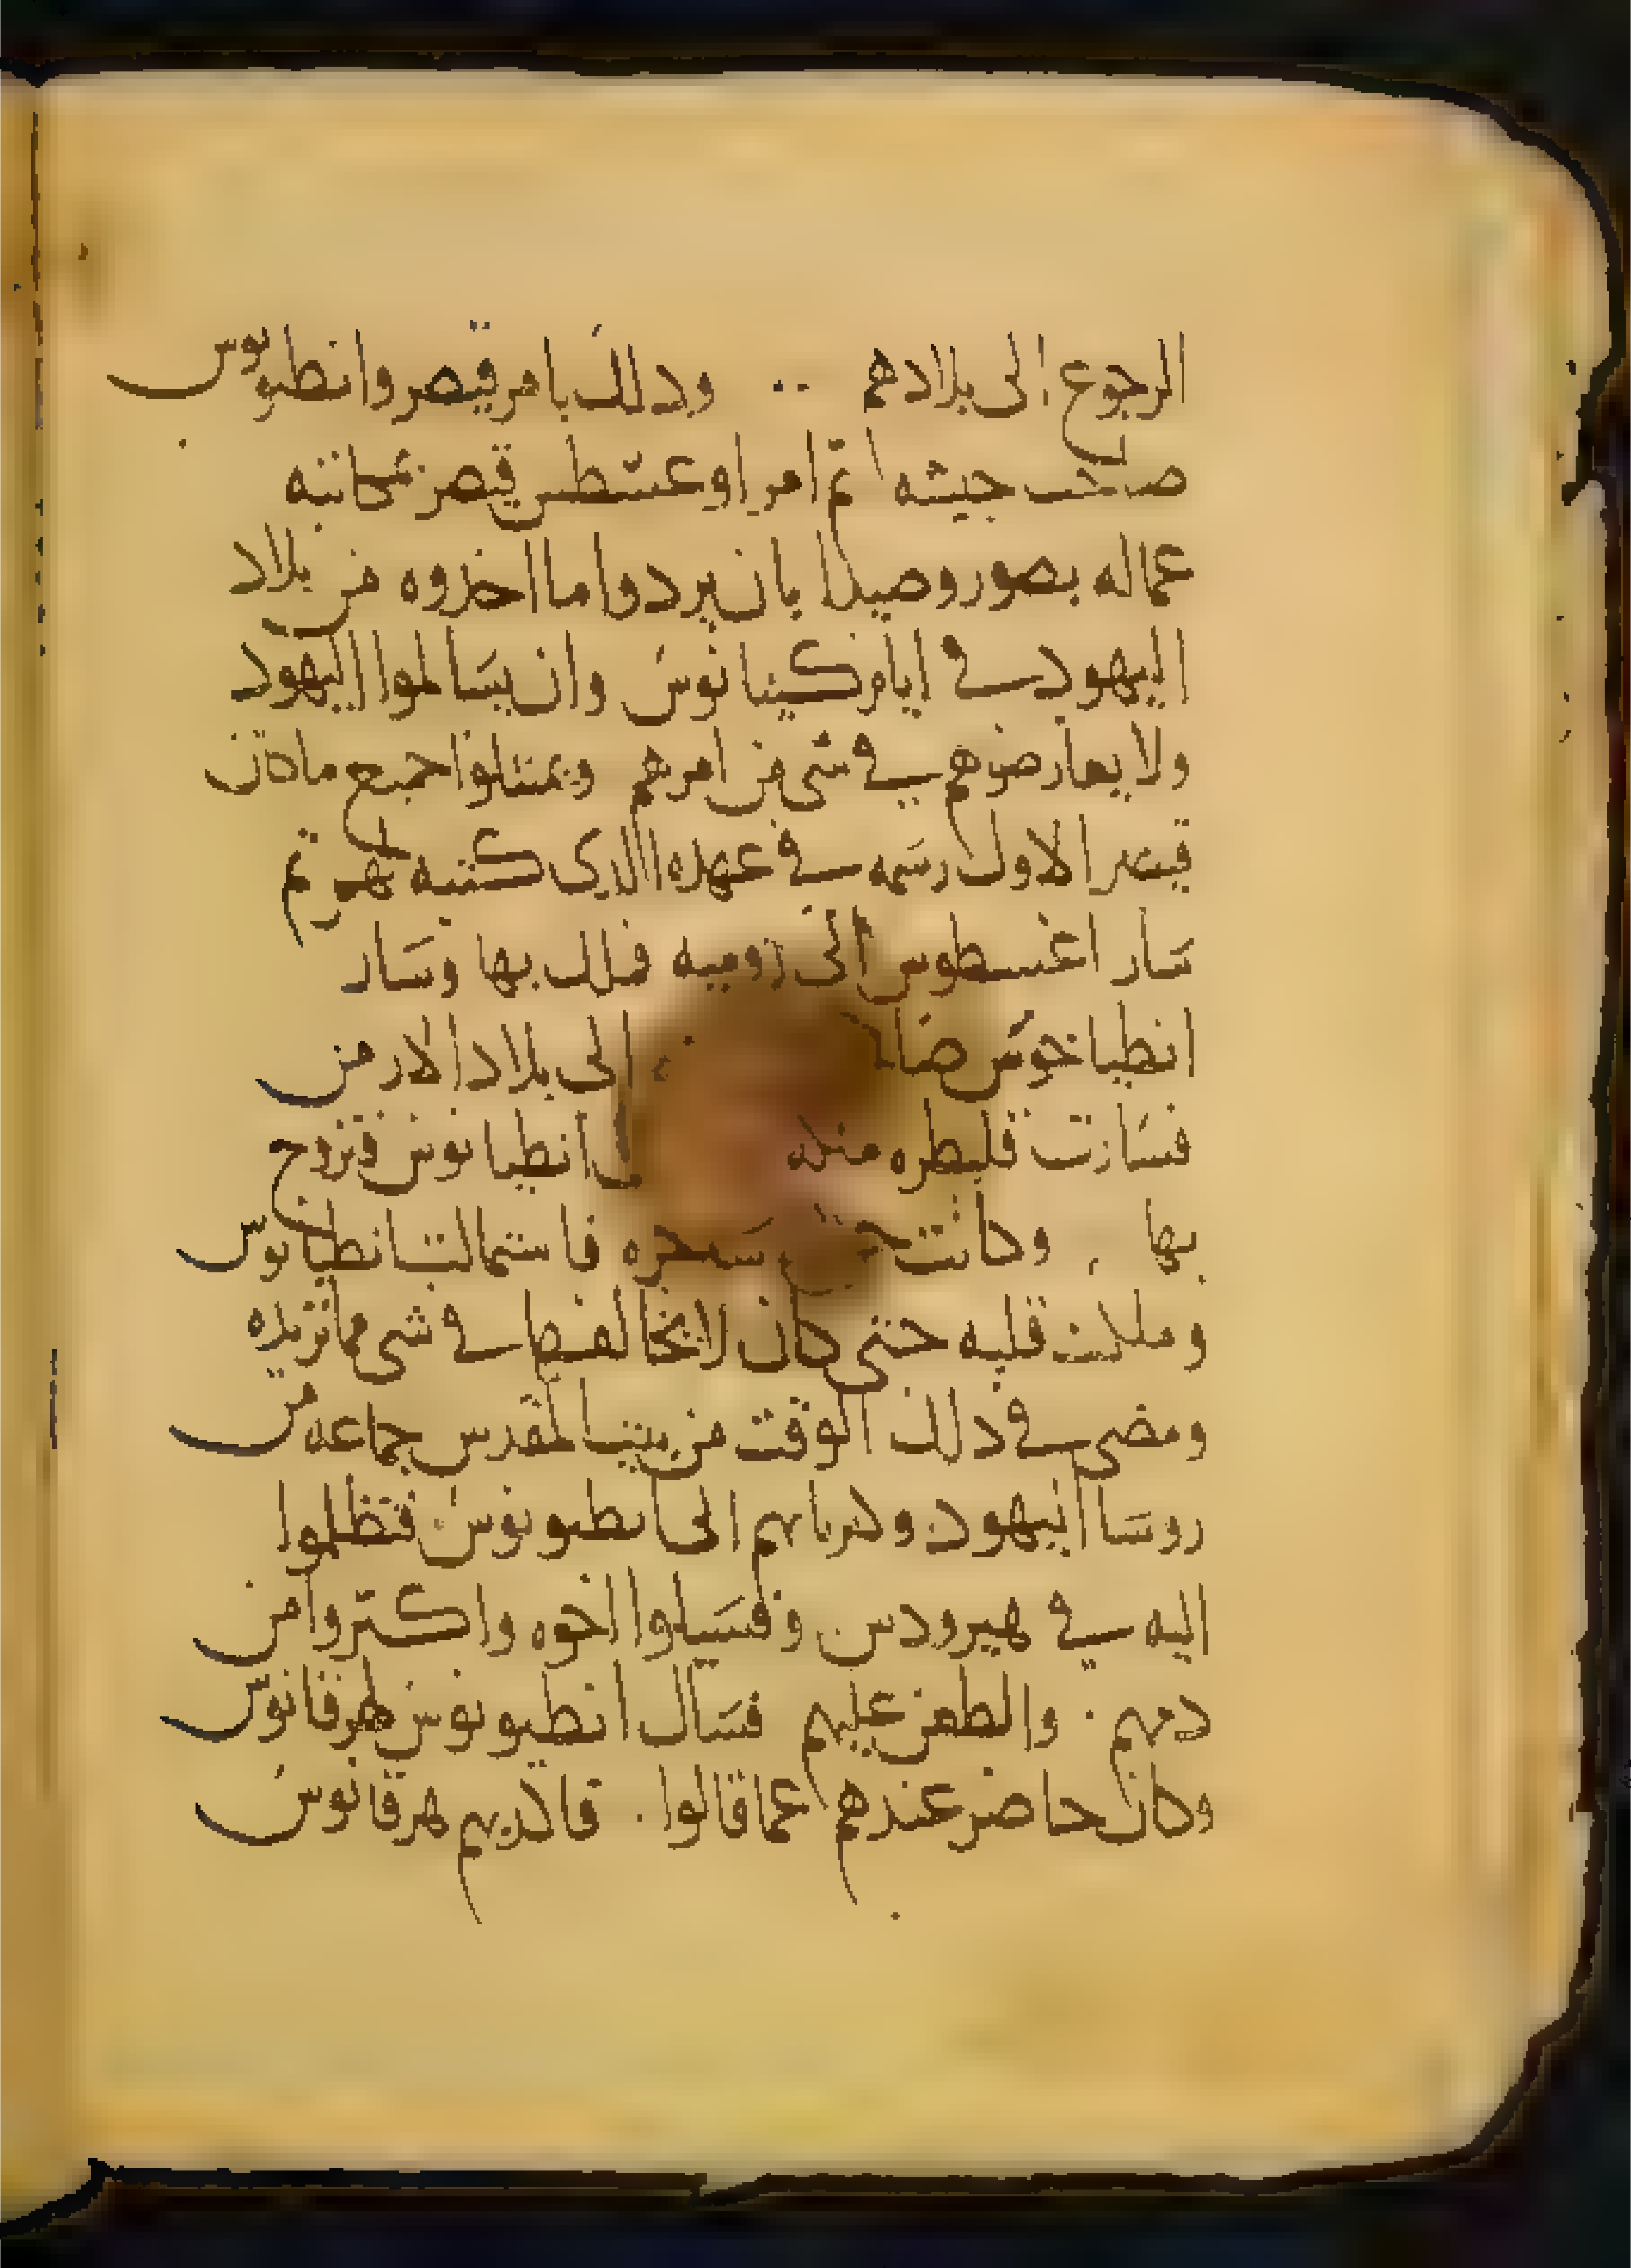 الرجوع الى بلادهم ودلك بامر قيصر وانطيونوس
صاحب جيشه ثم امر اوغسطس قيصر بمكاتبه
عماله بصور وصيدا بان يردوا ما اخذوه من بلاد
اليهود في ايام كينانوس وان يسالموا اليهود
ولا يعارضوهم في شى من امرهم ويمتثلوا جميع ماكان
قيصر الاول رسمه في عهده الدى كتبه لهم ثم
سار اغسطوس الى روميه فملك بها وسار
انطياخوس الى بلاد الارمن
فسارت قليطره انطيانوس فتزوج
بها وكانت سحره فاستمالت انطيانوس
وملكت قلبه حتى كان لا يخالفها في شى مما تريده
ومضى في دلك الوقت من بيت المقدس جماعه من
روسا اليهود وكبرايهم الى انطيونوس فتظلموا
اليه في هيرودس وفسيلوا اخوه واكثروا من
دمهم والطعن عليهم فسال انطيونوس لهرقانوس
وكان حاضر عندهم عما قالوا فاكدبهم هرقانوس